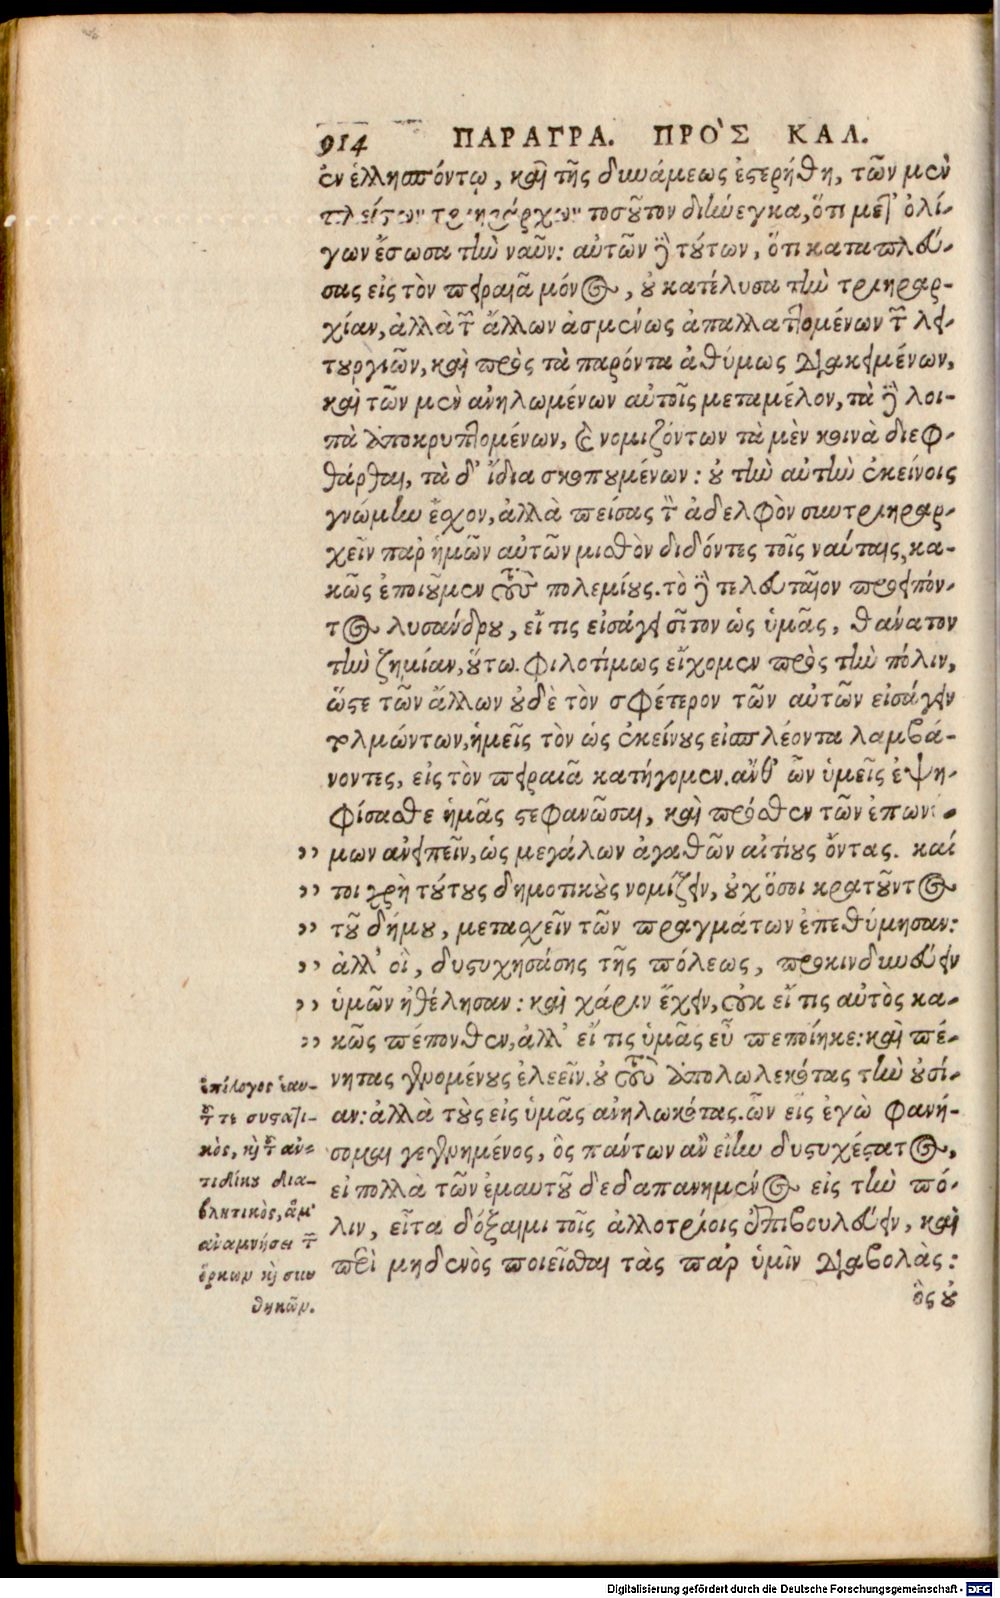 914 ΠΑΡΑΓΡΑ. ΠΡΟ'Σ ΚΑΛ.
ἐν ἑλλησπόντῳ, καὶ τῆς δυνάμεως ἐστερήθη, τῶν μὲν
πλείστων τριηράρχων τοσοῦτον διήνεγκα, ὅτι μετ' ὀλί-
γων ἔσωσα τὴν ναῦν: αὐτῶν δὲ τούτων, ὅτι καταπλεύ-
σας εἰς τὸν πειραιᾶ μόνος, οὐ κατέλυσα τὴν τριηραρ-
χίαν, ἀλλὰ τῶν ἄλλων ἀσμένως ἀπαλλαττομένων τῶν λει-
τουργιῶν, καὶ πρὸς τὰ παρόντα ἀθύμως διακειμένων,
καὶ τῶν μὲν ἀνηλωμένων αὐτοῖς μεταμέλον, τὰ δὲ λοι-
πὰ ἀποκρυπτομένων, καὶ νομιζόντων τὰ μὲν κοινὰ διεφ-
θάρθαι, τὰ δ' ἴδια σκοπουμένων: οὐ τὴν αὐτὴν ἐκείνοις
γνώμην ἔχον, ἀλλὰ πείσας τὸν ἀδελφὸν συντριηραρ-
χεῖν παρ' ἡμῶν αὐτῶν μισθὸν διδόντες τοῖς ναύταις, κα-
κῶς ἐποιοῦμεν τοὺς πολεμίους. τὸ δὲ τελευταῖον προειπόν-
τος λυσάνδρου, εἴ τις εἰσάγει σῖτον ὡς ὑμᾶς, θάνατον
τὴν ζημίαν, οὕτω φιλοτίμως εἴχομεν πρὸς τὴν πόλιν,
ὥστε τῶν ἄλλων οὐδὲ τὸν σφέτερον τῶν αὐτῶν εἰσάγειν
τολμώντων, ἡμεῖς τὸν ὡς ἐκείνους εἰσπλέοντα λαμβά-
νοντες, εἰς τὸν πειραιᾶ κατήγομεν. ἀνθ' ὧν ὑμεῖς ἐψη-
φίσασθε ἡμᾶς στεφανῶσαι, καὶ πρόσθεν τῶν ἐπωνύ-
,, μων ἀνειπεῖν, ὡς μεγάλων ἀγαθῶν αἰτίους ὄντας. καί
,, τοι χρὴ τούτους δημοτικοὺς νομίζειν, οὐχ ὅσοι κρατοῦντος
,, τοῦ δήμου, μετασχεῖν τῶν πραγμάτων ἐπεθύμησαν:
,, ἀλλ' οἳ, δυστυχησάσης τῆς πόλεως, προκινδυνεύειν
,, ὑμῶν ἠθέλησαν: καὶ χάριν ἔχειν, οὐκ εἴ τις αὐτὸς κα-
,, κῶς πέπονθεν, ἀλλ' εἴ τις ὑμᾶς εὖ πεποίηκε: καὶ πέ-
νητας γενομένους ἐλεεῖν. οὐ τοὺς ἀπολωλεκότας τὴν οὐσί-
αν: ἀλλὰ τοὺς εἰς ὑμᾶς ἀνηλωκότας. ὧν εἷς ἐγὼ φανή-
σομαι γεγενημένος, ὃς πάντων ἂν εἴην δυστυχέστατος,
εἰ πολλὰ τῶν ἐμαυτοῦ δεδαπανημένος εἰς τὴν πό-
λιν, εἶτα δόξαιμι τοῖς ἀλλοτρίοις ἐπιβουλεύειν, καὶ
περὶ μηδενὸς ποιεῖσθαι τὰς παρ' ὑμῖν διαβολὰς:
ὃς οὐ
ἐπίλογος ἑαυ-
τοῦ τε συστατι-
κὸς, καὶ τοῦ ἀν-
τιδίκου δια-
βλητικὸς, ἅμ'
ἀναμνήσει τῶν
ὅρκων καὶ συν
θηκῶν.
Digitalisierung gefördert durch die Deutsche Forschungsgemeinschaft - DFG